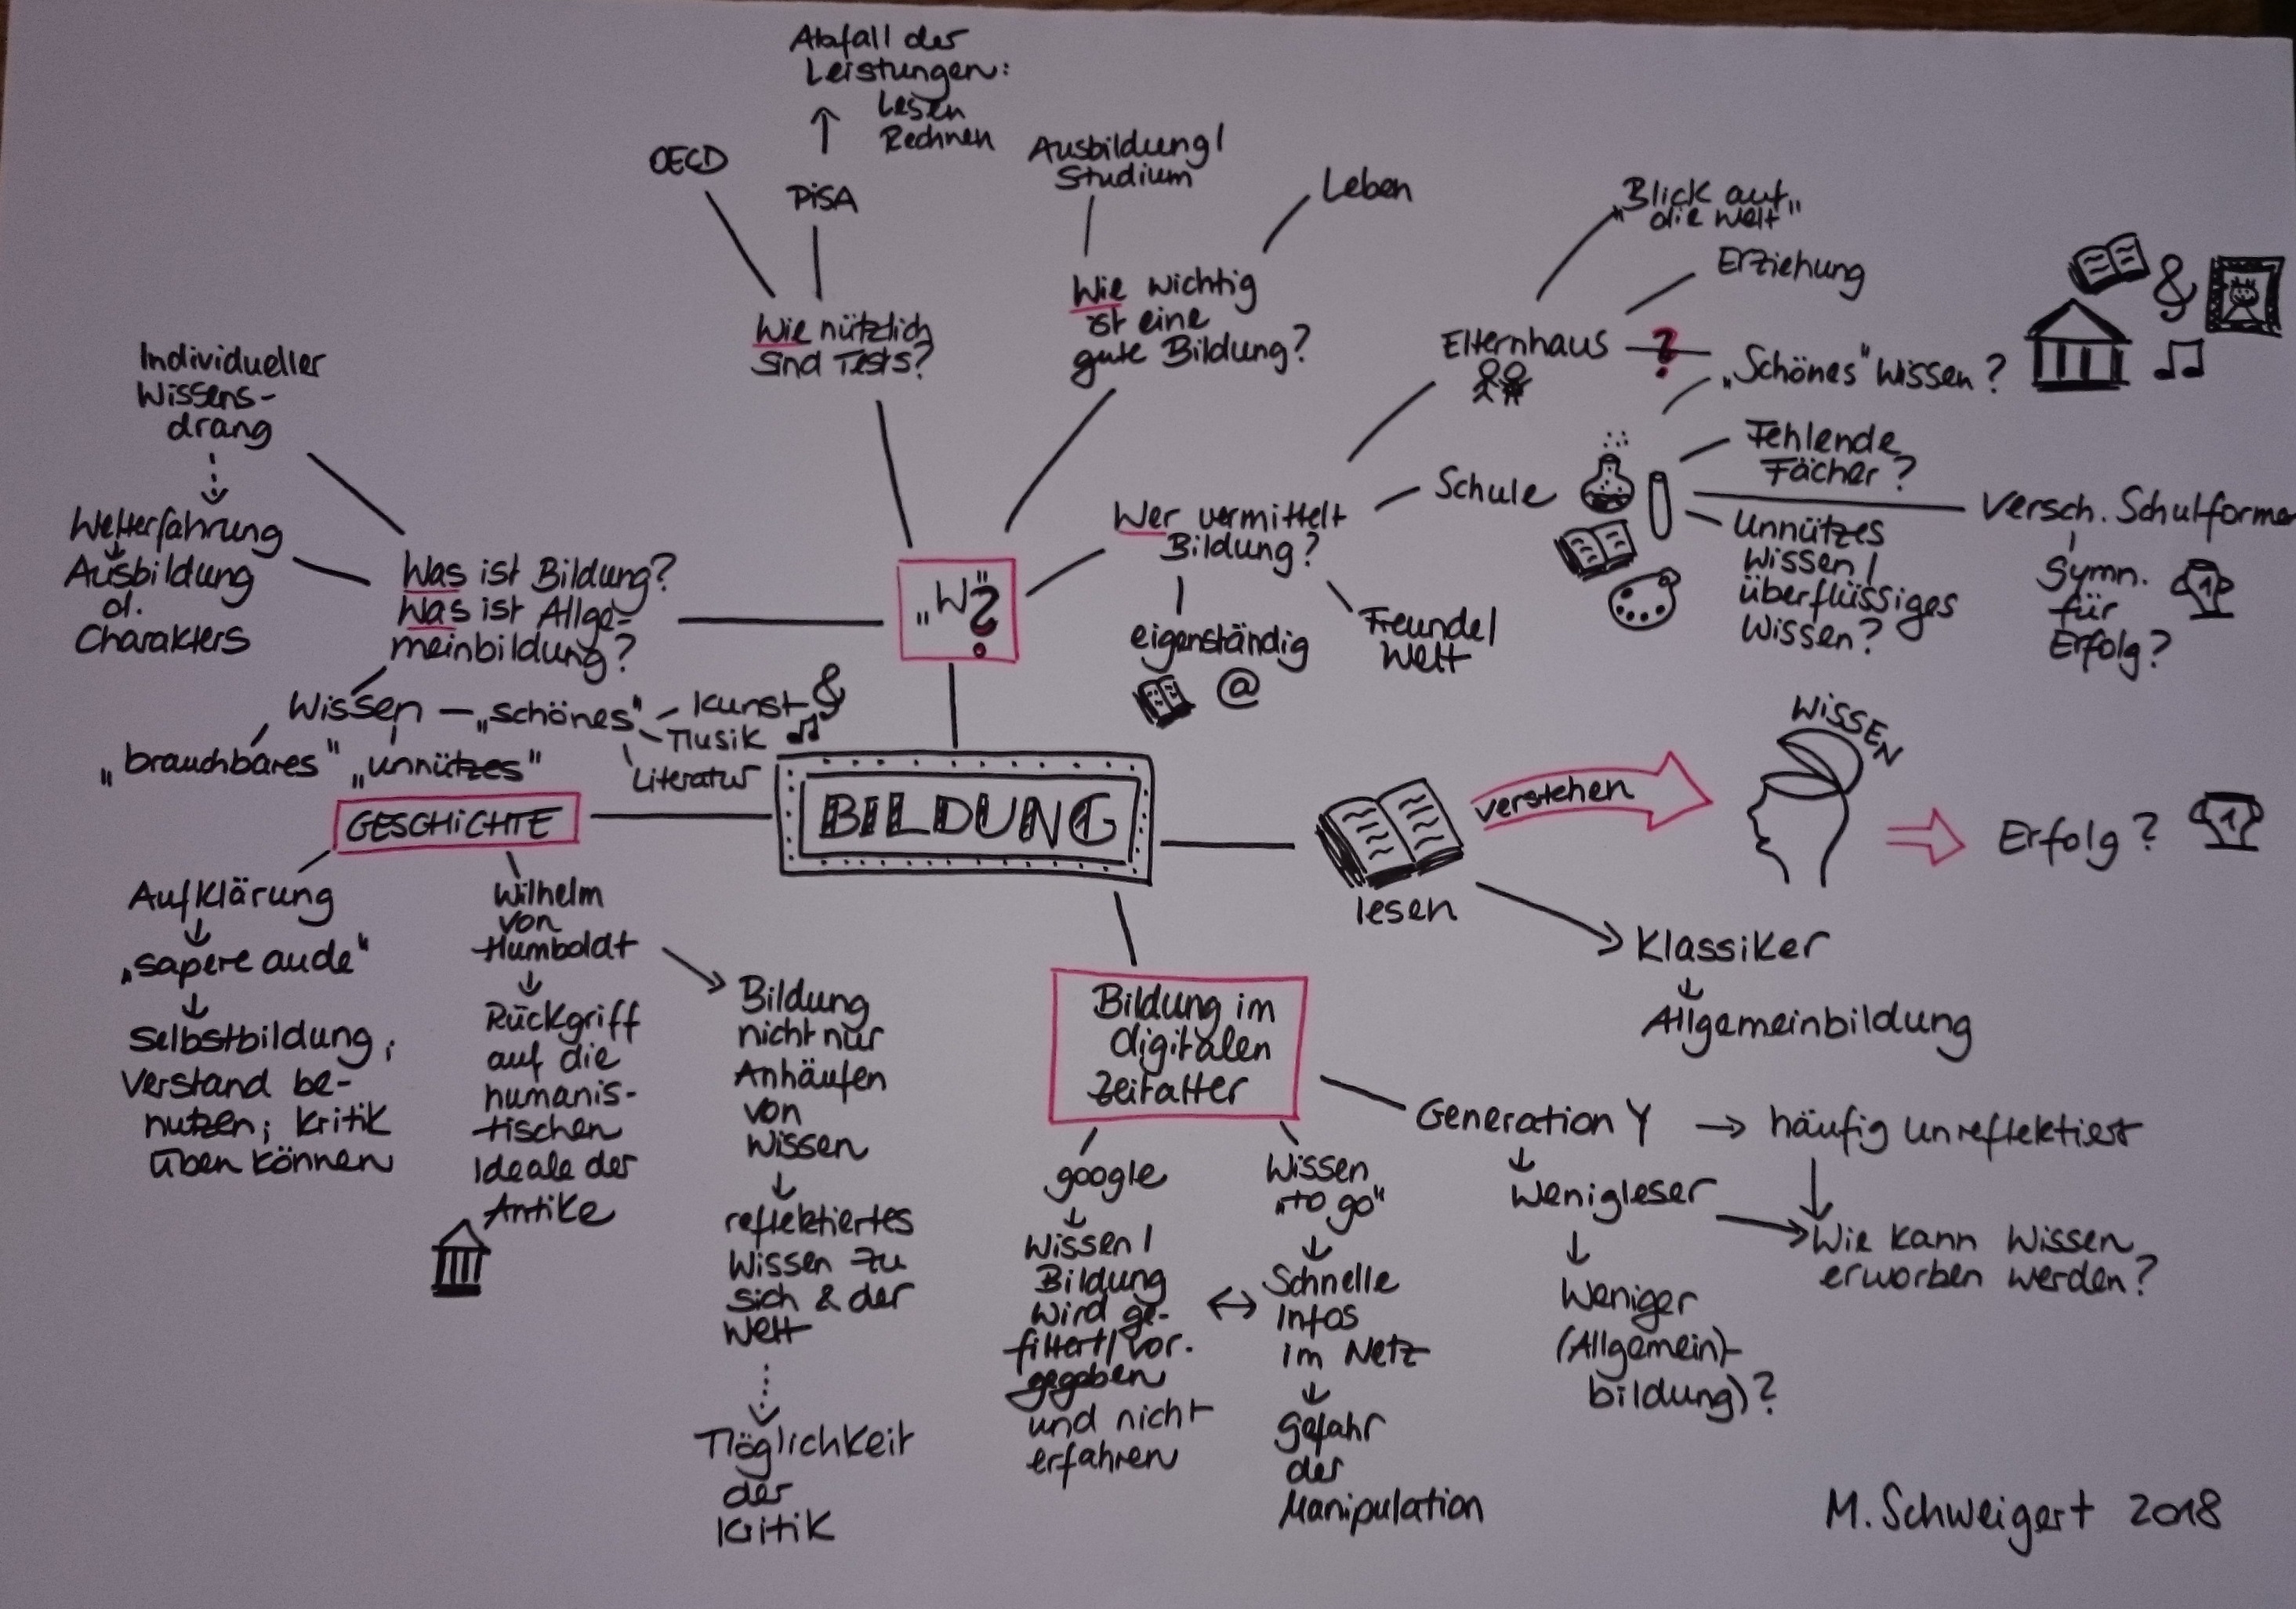 Abfall der
Leistungen:
Lesen
Rechnen
OECD
PISA
Wie nützlich
sind Tests?
Ausbildung/
Studium
Leben
Wie wichtig
ist eine
gute Bildung?
„Blick auf
die Welt"
Erziehung
Elternhaus
?
„Schönes" Wissen?
&
Wer vermittelt
Bildung?
Schule
Fehlende
Fächer?
Unnützes
Wissen/
überflüssiges
Wissen?
Versch. Schulforme
Gymn.
für
Erfolg?
1
eigenständig
@
Freunde/
Welt
„W"
?
Individueller
Wissens-
drang
Welterfahrung
Ausbildung
d.
Charakters
Was ist Bildung?
Was ist Allge-
meinbildung?
Wissen
„schönes"
Kunst &
Musik
Literatur
„brauchbares"
„unnützes"
BILDUNG
GESCHICHTE
Aufklärung
„sapere aude"
Selbstbildung;
Verstand be-
nutzen; Kritik
üben können
Wilhelm
von
Humboldt
Rückgriff
auf die
humanis-
tischen
Ideale der
Antike
Bildung
nicht nur
Anhäufen
von
Wissen
reflektiertes
Wissen zu
sich & der
Welt
Möglichkeit
der
Kritik
lesen
verstehen
WISSEN
Erfolg?
1
Klassiker
Allgemeinbildung
Bildung im
digitalen
Zeitalter
google
Wissen/
Bildung
wird ge-
filtert/vor.
gegeben
und nicht
erfahren
Wissen
„to go"
Schnelle
Infos
im Netz
Gefahr
der
Manipulation
Generation Y
häufig unreflektiert
Wenigleser
Wie kann Wissen
erworben werden?
Weniger
(Allgemein)-
bildung)?
M. Schweigert 2018